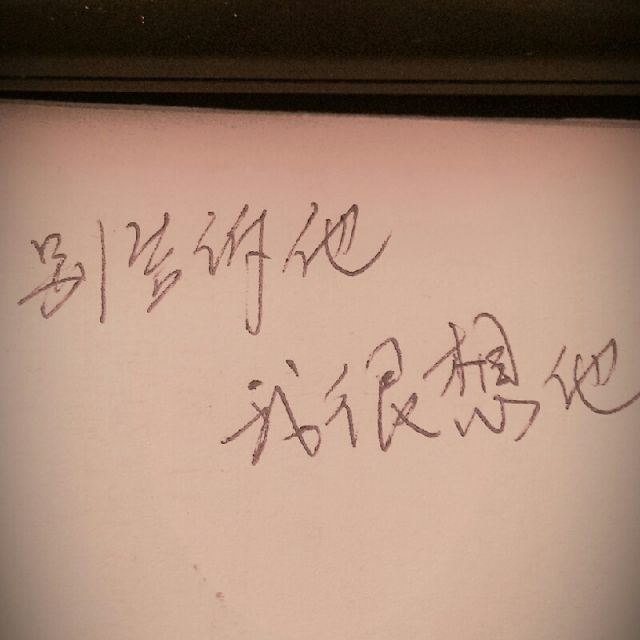 别告诉他
我很想他